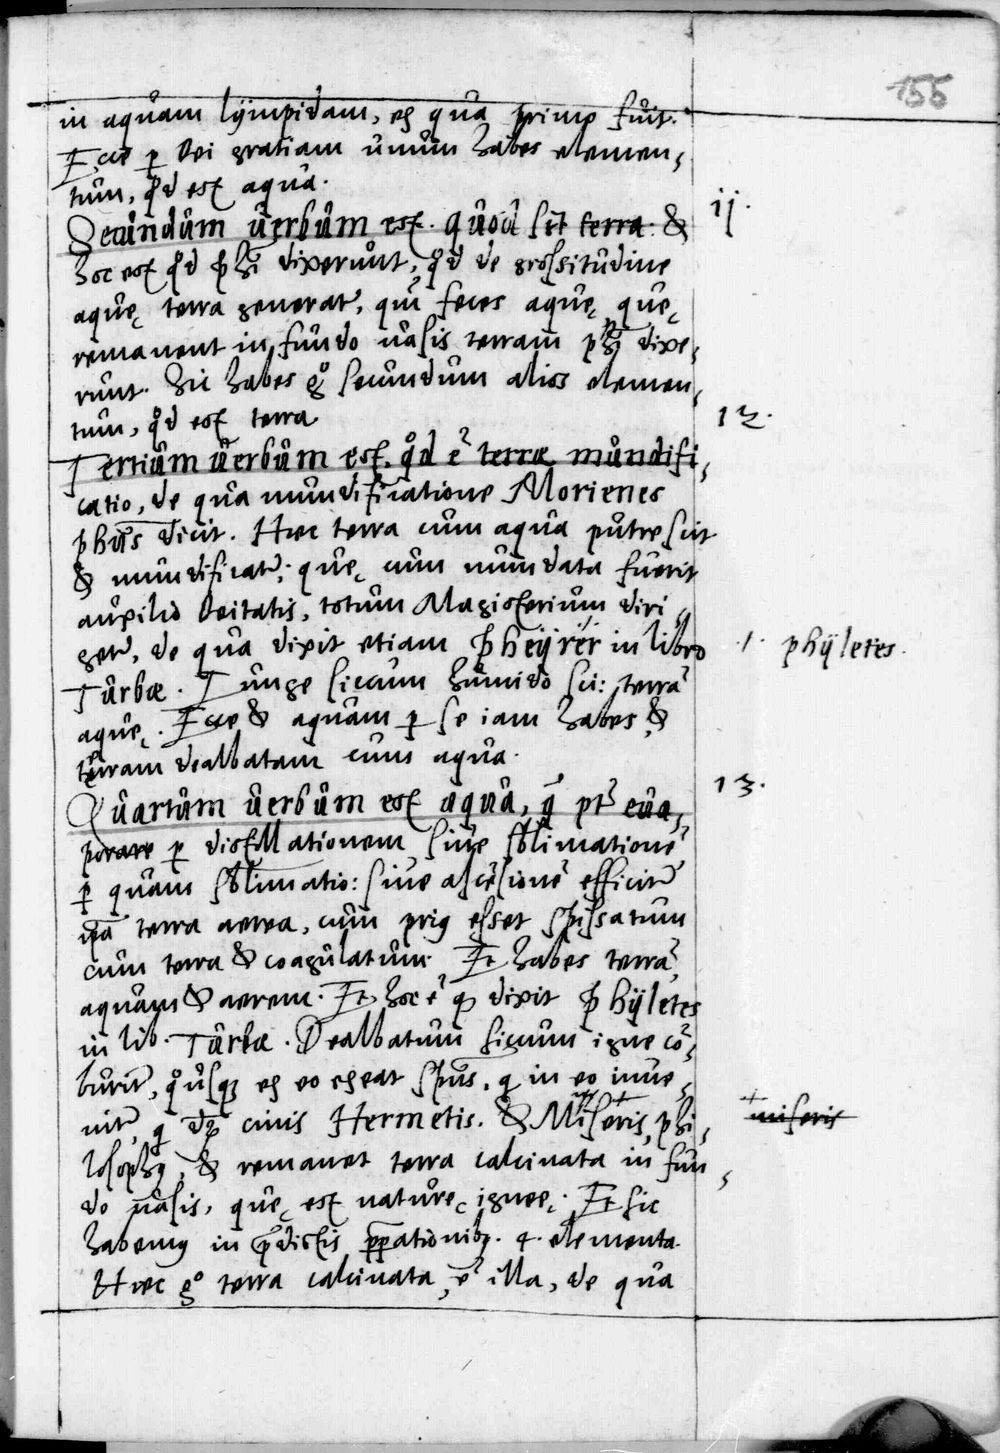 155
in aquam lÿmpidam, ex qua primo fuit.
Ecce p Dei gratiam unum habes elemen,
tum, qd est aqua.
Secundum uerbum est. quod sit terra. &
ij.
hoc est qd phi dixerunt, qd de grossitudine
aquę terra generatr, qui feces aquę, quę
remanent in fundo uasis terram phi dixe,
runt. hic habes go secundum alios elemen,
tum, qd est terra
12.
Tertium uerbum est, qd ē terræ mundifi,
catio, de qua mundificatione Morienes
phūs dicit. Hæc terra cum aqua putrescit
& mundificatr, quę cum mundata fuerit
auxilio Deitatis, totum Magisterium diri,
getr, de qua dixit etiam Pheÿrer in libro
+. phÿletes.
Turbæ. Iunge siccum humido sci: terrā
aquę. Ecce & aquam p se iam habes, &
terram dealbatam cum aqua.
13.
Quartum uerbum est aqua, q̄ pt eua,
porare p distillationem siue sblimationē
p quam sblimatio: siue ascēsionē efficitr
terra aerea, cum prig esset spissatum
cum terra & coagulatum. Et habes terrā,
aquam & aerem. Et hoc ē q dixit Phÿletes
in lib. Turbæ. Dealbatum siccum igne cō,
buritr, qusq ex eo exeat spūs, q in eo inue,
nitr, q dr cinis Hermetis. & Miseris, phi,
+ miseris
losophg, & remanet terra calcinata in fun,
do uasis, quę est naturę igneę. Et sic
habemg in prędictis ppationibg. 4. elementa.
Hæc go terra calcinata, ē illa, de qua